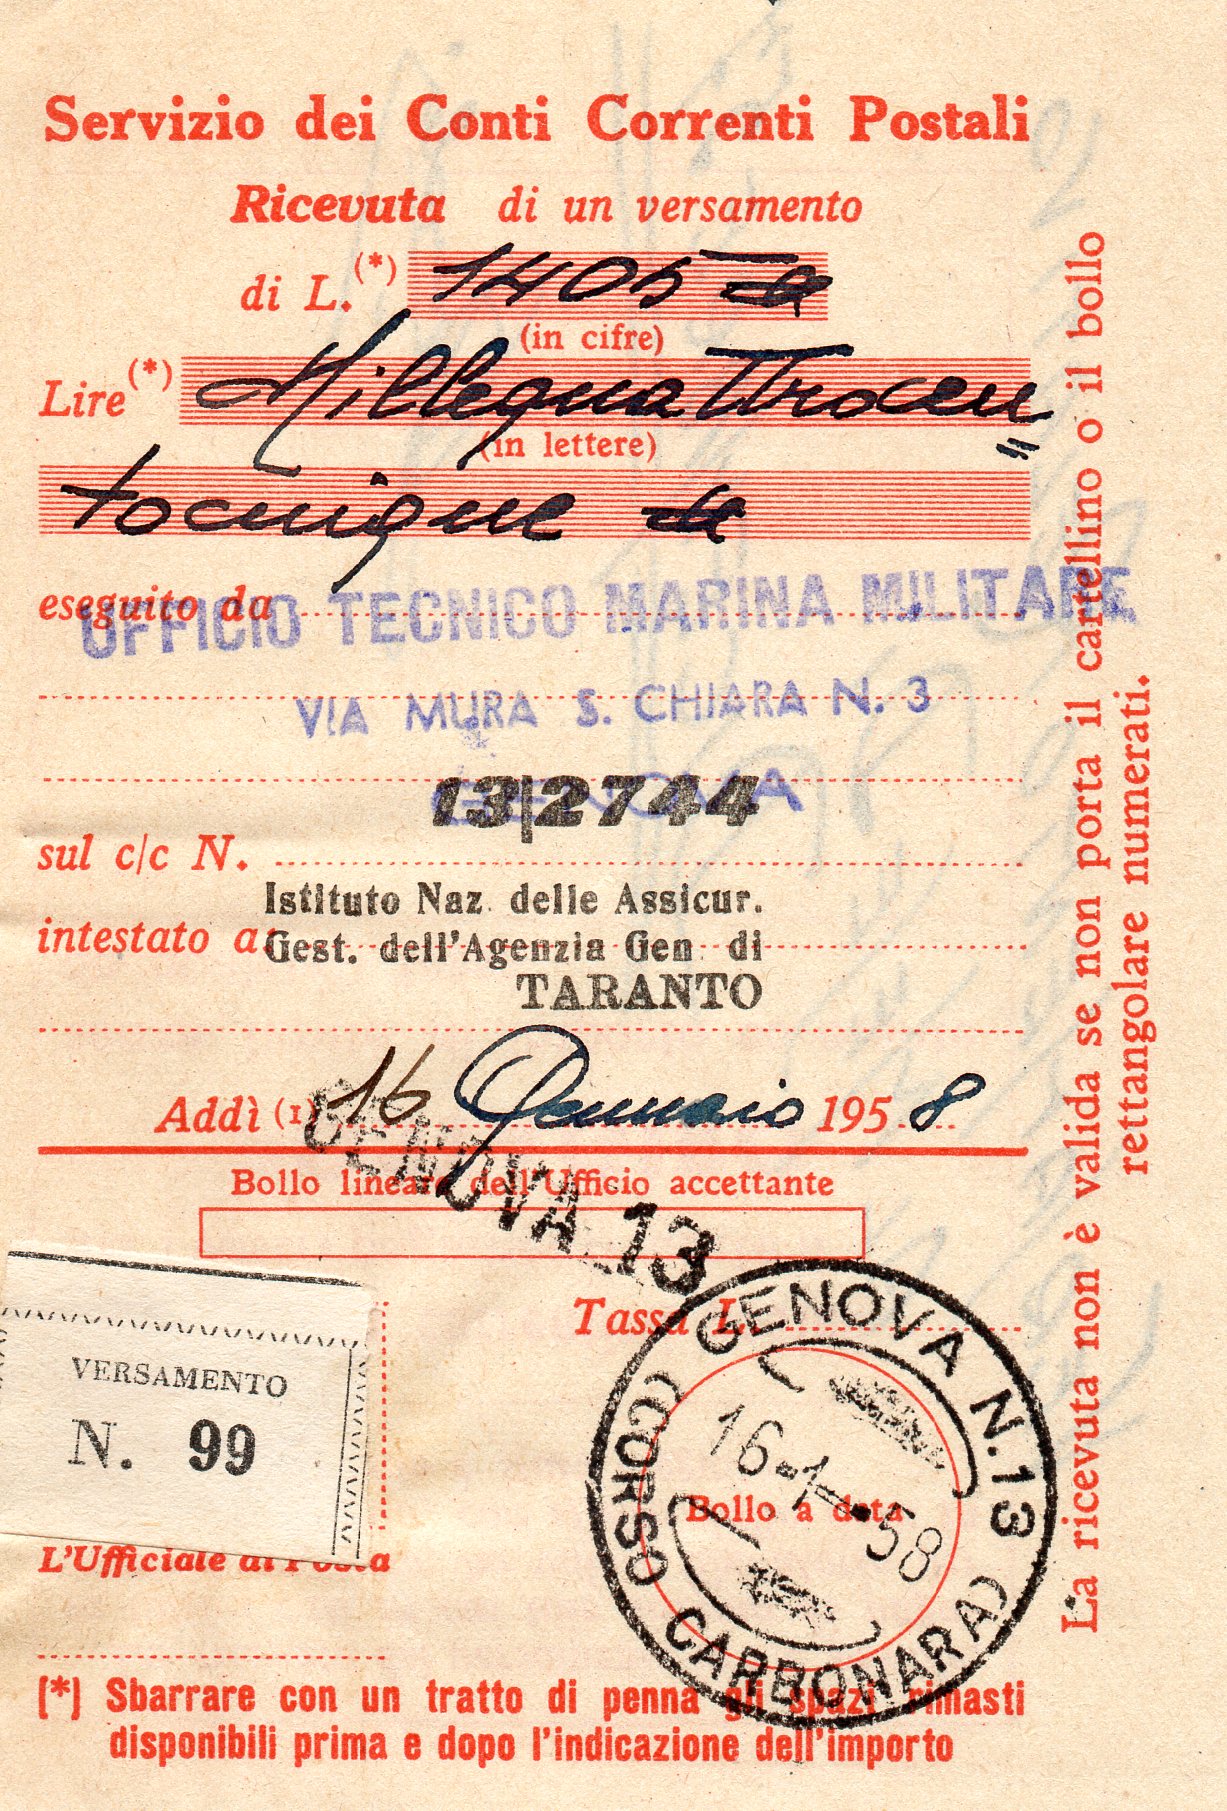 Servizio dei Conti Correnti Postali
Ricevuta di un versamento
di L.(*) 1405
(in cifre)
Lire(*) Millequattrocen=
(in lettere)
tocinque
eseguito da
UFFICIO TECNICO MARINA MILITARE
VIA MURA S. CHIARA N. 3
GENOVA
13|2744
sul c/c N.
Istituto Naz. delle Assicur.
intestato a: Gest. dell'Agenzia Gen di
TARANTO
Addì (1) 16 Gennaio 1958
GENOVA 13
Bollo lineare dell'Ufficio accettante
Tassa L.
VERSAMENTO
N. 99
GENOVA N.13
(CORSO CARBONARA)
16-1-58
Bollo a data
L'Ufficiale di Posta
(*) Sbarrare con un tratto di penna gli spazi rimasti
disponibili prima e dopo l'indicazione dell'importo
La ricevuta non è valida se non porta il cartellino o il bollo
rettangolare numerati.